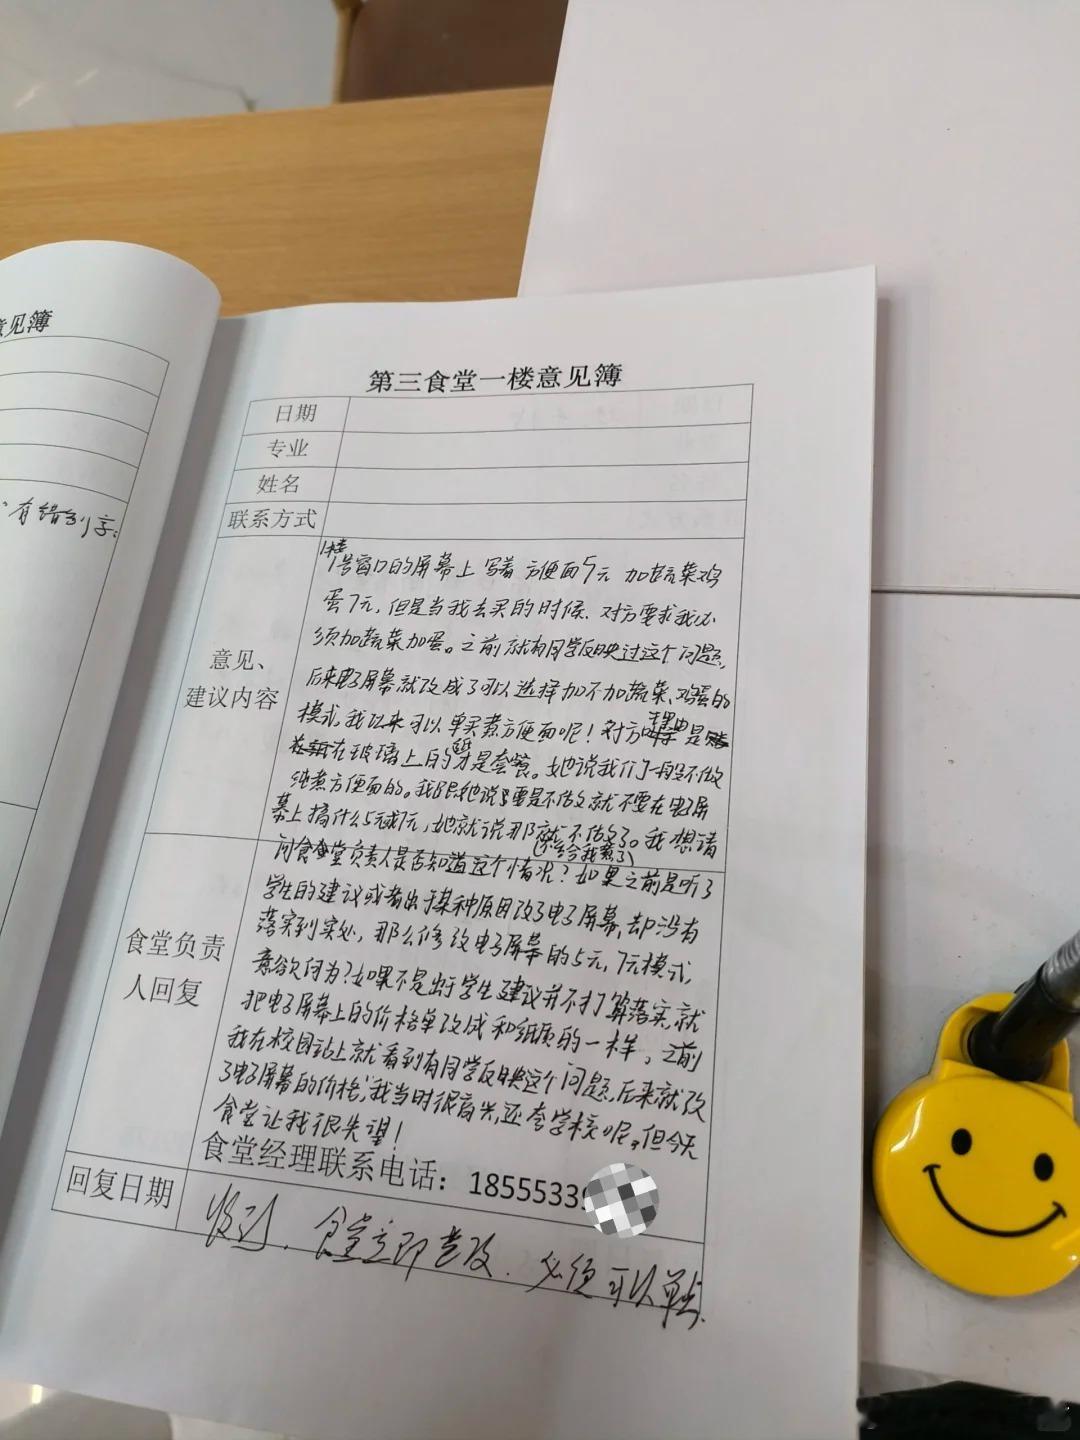 意见簿
有错别字。
第三食堂一楼意见簿
日期
专业
姓名
联系方式
意见、
建议内容
1楼
1号窗口的屏幕上写着方便面5元 加蔬菜鸡
蛋7元，但是当我去买的时候，对方要求我必
须加蔬菜加蛋。之前就有同学反映过这个问题，
后来电子屏幕就改成了可以选择加不加蔬菜、鸡蛋的
模式，我以来可以单买煮方便面呢！对方 是
在玻璃上的 是套餐。她说我们一般不做
纯煮方便面的。我跟她说要是不做就不要在电子屏
幕上搞什么5元或7元，她就说那就不做了。我想请
(不给我煮了)
问食堂负责人是否知道这个情况？如果之前是听了
学生的建议或者出于某种原因改了电子屏幕，却没有
落实到实处，那么修改电子屏幕的5元，7元模式，
意欲何为？如果不是出于学生建议并不打算落实，就
把电子屏幕上的价格单改成和纸质的一样，之前
我在校园站上就看到有同学反映这个问题，后来就改
了电子屏幕的价格，我当时很高兴，还夸学校呢，但今天
食堂让我很失望！
食堂负责
人回复
食堂经理联系电话：18555339
回复日期
收到，食堂立即整改，必须可以单点。